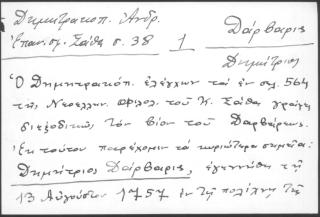 Δημητρακόπ. Ἀνδρ.
Ἐπαν. σ. Σάθα σ. 38
1
Δάρβαρις
Δημήτριος
Ὁ Δημητρακόπ. ἐλέγχων τὰ ἐν σελ. 564
τῆς Νεοελλην. Φιλολ. τοῦ Κ. Σάθα γράφει
διεξοδικῶς τὸν βίον τοῦ Δαρβάρεως.
Ἐκ τούτου παρέχομεν τὰ κυριώτερα σημεῖα:
Δημήτριος Δάρβαρις, ἐγεννήθη τῇ
13 Αὐγούστου 1757 ἐν τῇ πολίχνῃ τῆς